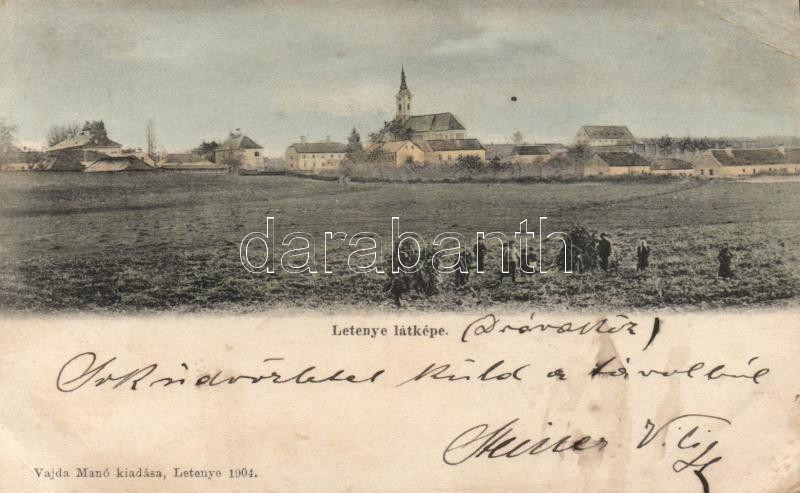 darabanth
Letenye látképe. (Drávaköz)
Sok üdvözletet küld a távolból
Steiner
Vajda Manó kiadása, Letenye 1904.